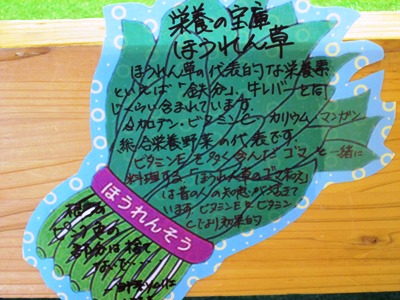 栄養の宝庫
ほうれん草
ほうれん草の代表的な栄養素
といえば「鉄分」、牛レバーと同
じくらい含まれています。
カロテン・ビタミンC・カリウム・マンガン
総合栄養野菜の代表です。
ビタミンEを多く含んだゴマと一緒に
料理する、「ほうれん草のゴマ和え」
は昔の人の知恵が生きて
います ビタミンEとビタミン
Cでより効果的
ほうれんそう
根元の
ピンク色の
部分は捨て